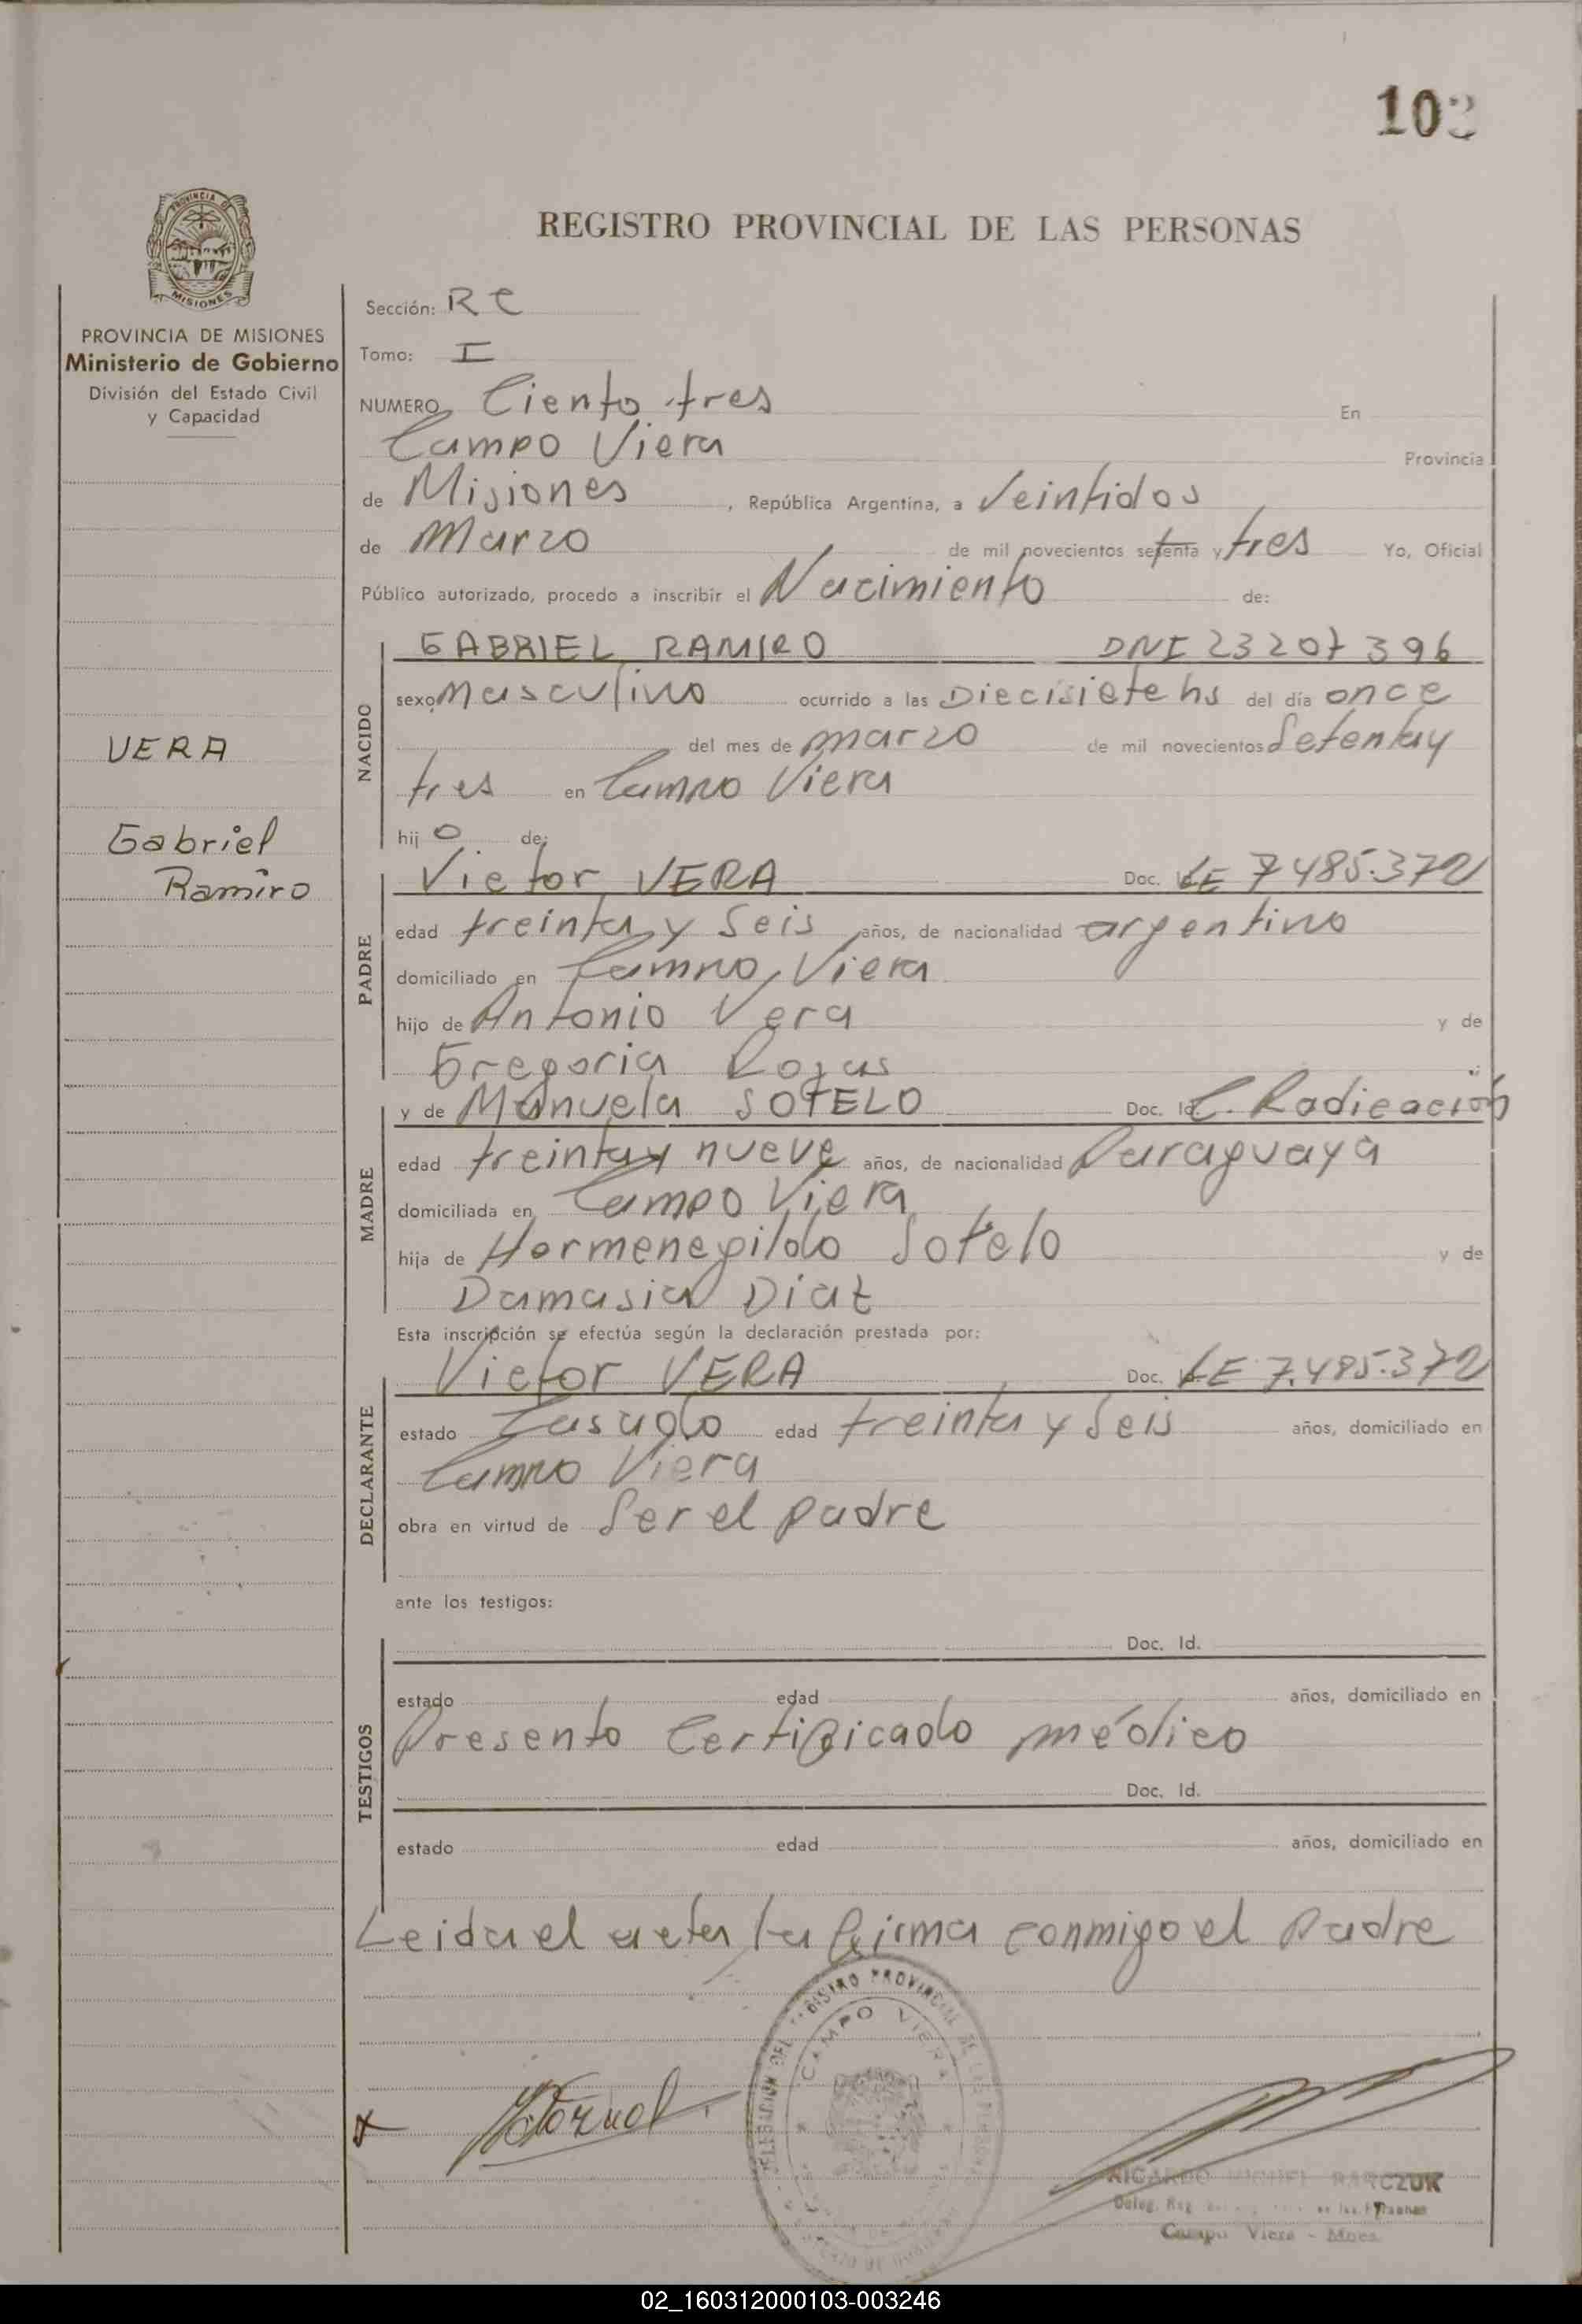 103
REGISTRO PROVINCIAL DE LAS PERSONAS
PROVINCIA DE MISIONES
Ministerio de Gobierno
División del Estado Civil
y Capacidad
VERA
Gabriel
Ramiro
Sección: RC
Tomo: I
NUMERO Ciento tres En
Campo Viera Provincia
de Misiones, República Argentina, a Veintidos
de Marzo de mil novecientos setenta y tres Yo, Oficial
Público autorizado, procedo a inscribir el Nacimiento de:
NACIDO
GABRIEL RAMIRO DNI 23207396
sexo masculino ocurrido a las Diecisiete hs del día once
del mes de marzo de mil novecientos Setenta y
tres en Campo Viera
hijo de:
PADRE
Victor VERA Doc. LE 7485.372
edad treinta y Seis años, de nacionalidad argentino
domiciliado en Campo Viera
hijo de Antonio Vera y de
Gregoria Rojas
MADRE
y de Manuela SOTELO Doc. Id C. Radicación
edad treinta y nueve años, de nacionalidad Paraguaya
domiciliada en Campo Viera
hija de Hermenegildo Sotelo y de
Damasia Diaz
Esta inscripción se efectúa según la declaración prestada por:
DECLARANTE
Victor VERA Doc. LE 7.485.372
estado Casado edad treinta y Seis años, domiciliado en
Campo Viera
obra en virtud de Ser el padre
ante los testigos:
TESTIGOS
Doc. Id.
estado edad años, domiciliado en
Presento Certificado médico
Doc. Id.
estado edad años, domiciliado en
Leida el acta la firma conmigo el Padre
DELEGACION DEL REGISTRO PROVINCIAL DE LAS PERSONAS
CAMPO VIERA
RICARDO MIGUEL BARCZUK
Deleg. Reg. de las Personas
Campo Viera - Mnes.
02_160312000103-003246